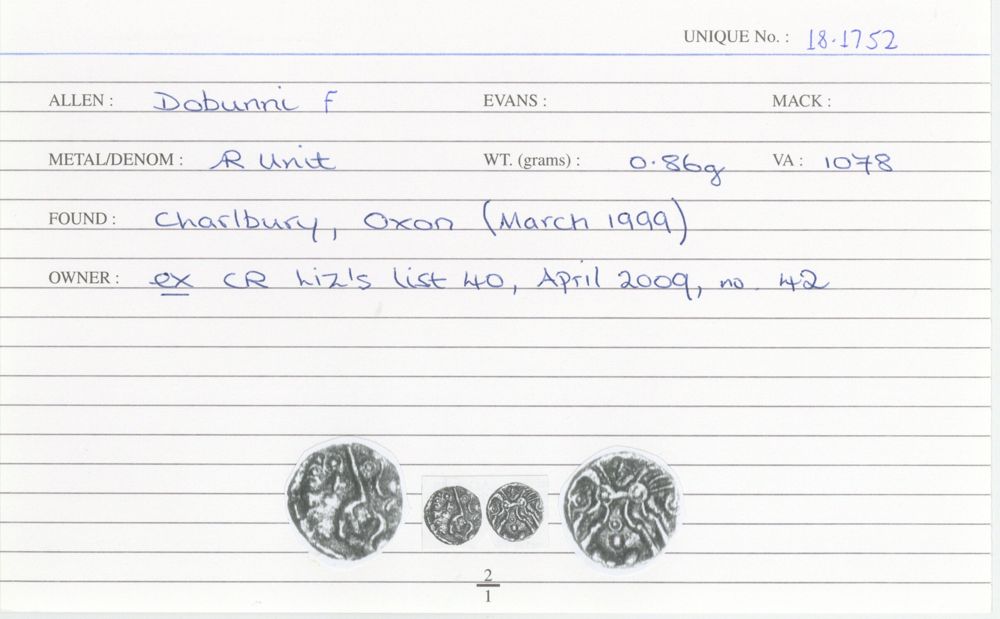 UNIQUE No. : 18.1752
ALLEN : Dobunni F EVANS : MACK :
METAL/DENOM : AR Unit WT. (grams) : 0.86g VA : 1078
FOUND : Charlbury, Oxon (March 1999)
OWNER : ex CR Liz's list 40, April 2009, no. 42
2
1